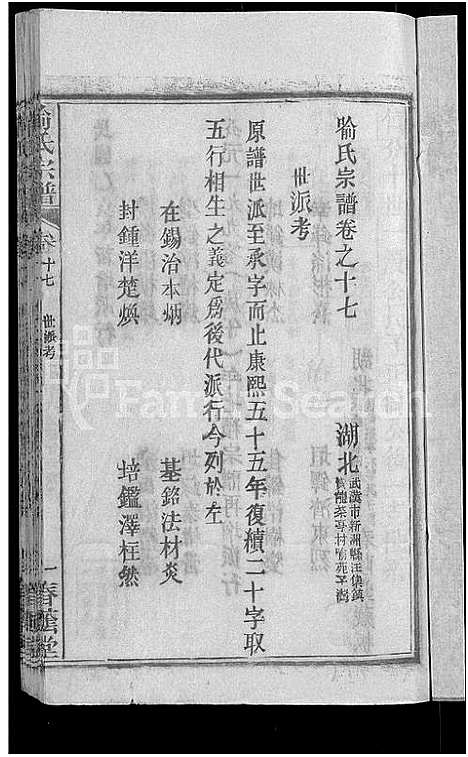 喻氏宗譜卷之十七
湖北
武漢市新洲縣汪集鎮
世派考
原譜世派至承字而止康熙五十五年復續二十字取
五行相生之義定爲後代派行今列於左
在錫治本炳
基銘法材炎
封鍾洋楚煥
培鑑澤柱然
喻氏宗譜
卷十七
世派考
一
春蔭堂
FamilySearch